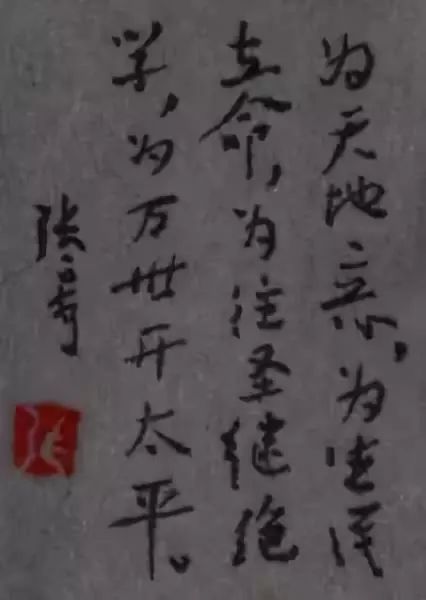 为天地立心，为生民
立命，为往圣继绝
学，为万世开太平。
张